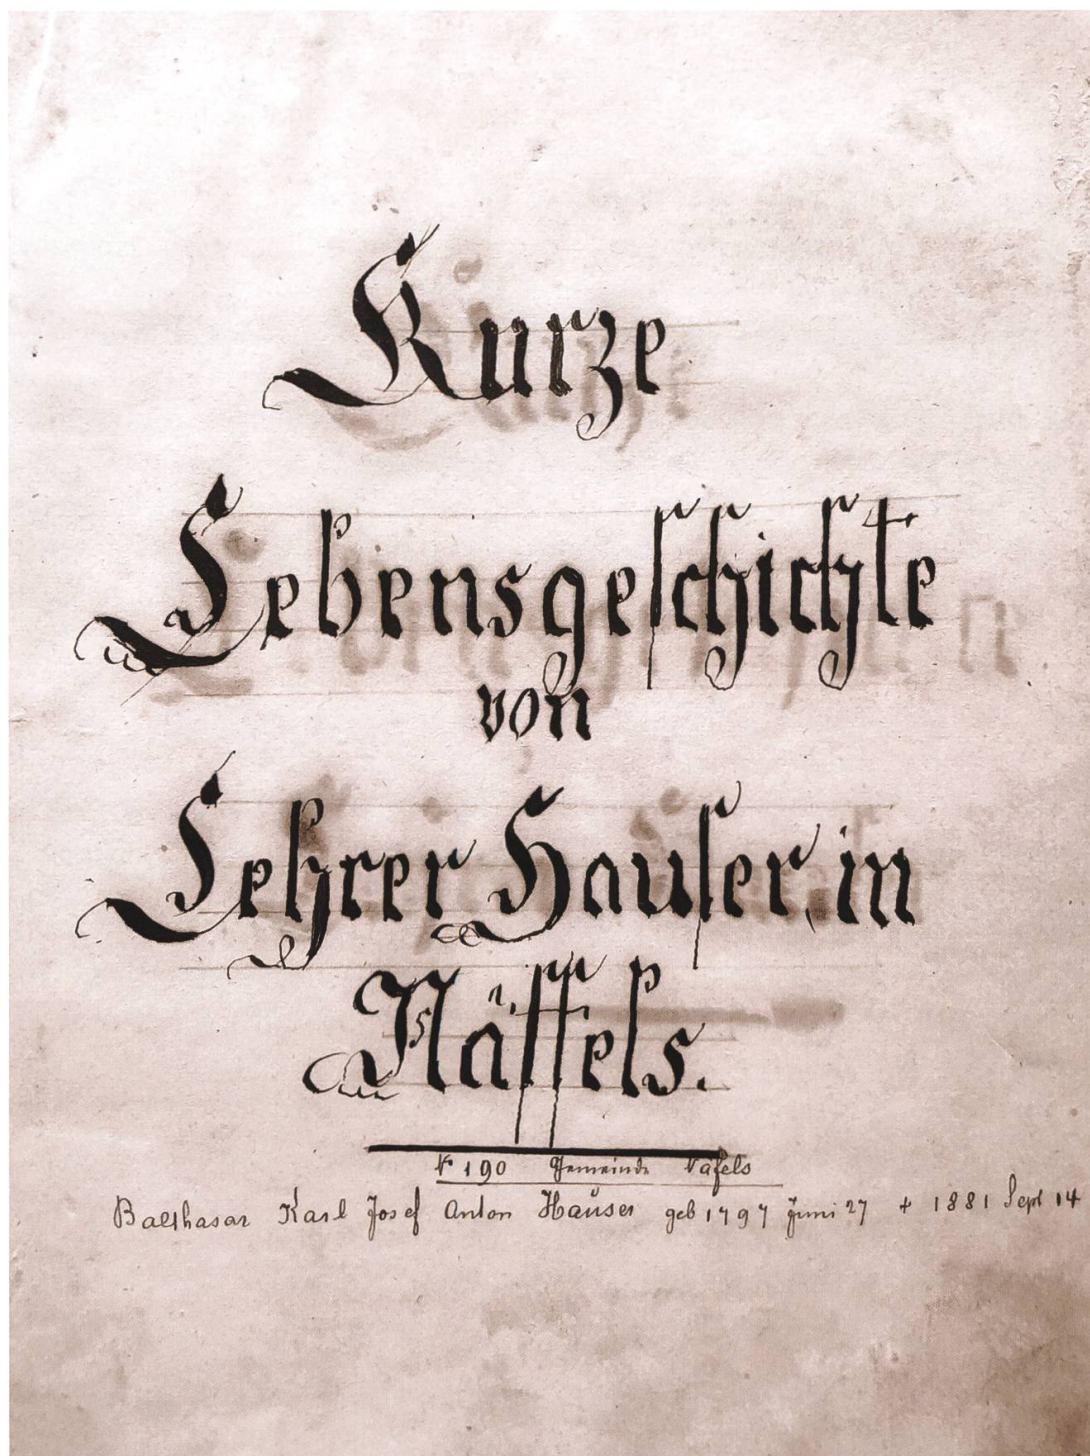 Kurze
Lebensgeschichte
von
Lehrer Hauser, in
Näffels.
N° 190 Gemeinde Näfels
Balthasar Karl Josef Anton Hauser geb 1797 Juni 27 + 1881 Sept 14